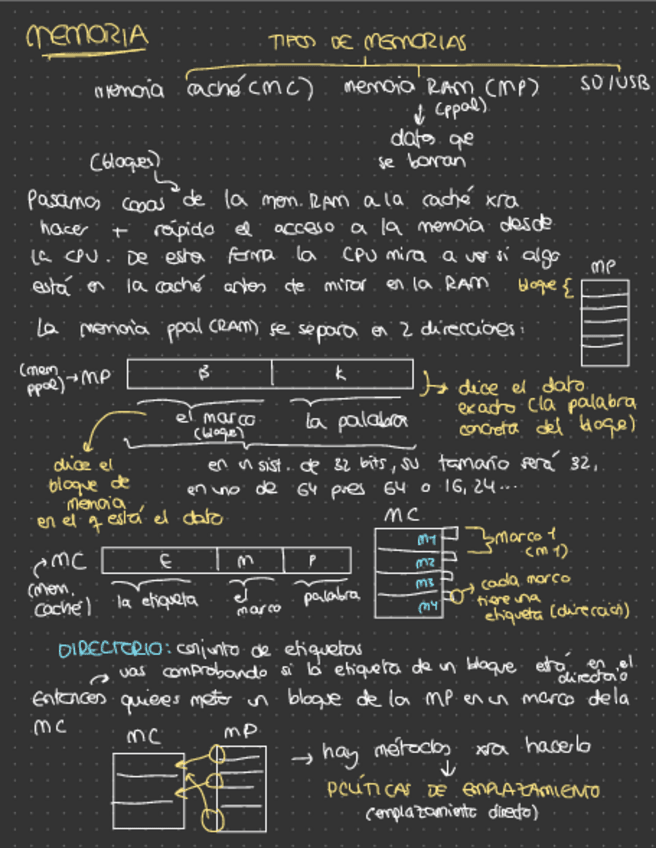 MEMORIA
TIPOS DE MEMORIAS
memoria caché (MC) memoria RAM (MP) SD/USB
(ppal)
datos que
se borran
(bloques)
Pasamos cosas de la mem. RAM a la caché xra
hacer + rápido el acceso a la memoia desde
la CPU. De esta forma la CPU mira a ver si algo
está en la caché antes de mirar en la RAM
MP
bloque {
La memoria ppal (RAM) se separa en 2 direcciones:
(mem ppal) → MP
B K
el marco
(bloque)
la palabra
dice el dato
exacto (la palabra
concreta del bloque)
dice el
bloque de
memoria
en el q está el dato
en un sist. de 32 bits, su tamaño será 32,
en uno de 64 pues 64 o 16, 24...
MC
M1
M2
M3
M4
marco 1
(m1)
cada marco
tiene una
etiqueta (dirección)
MC
(mem.
caché)
E M P
la etiqueta
el
marco
palabra
DIRECTORIO: conjunto de etiquetas
vas comprobando si la etiqueta de un bloque está en el
directorio
Entonces quieres meter un bloque de la MP en un marco de la
MC
MC MP
→ hay métodos xra hacerlo
POLÍTICAS DE EMPLAZAMIENTO
(emplazamiento directo)